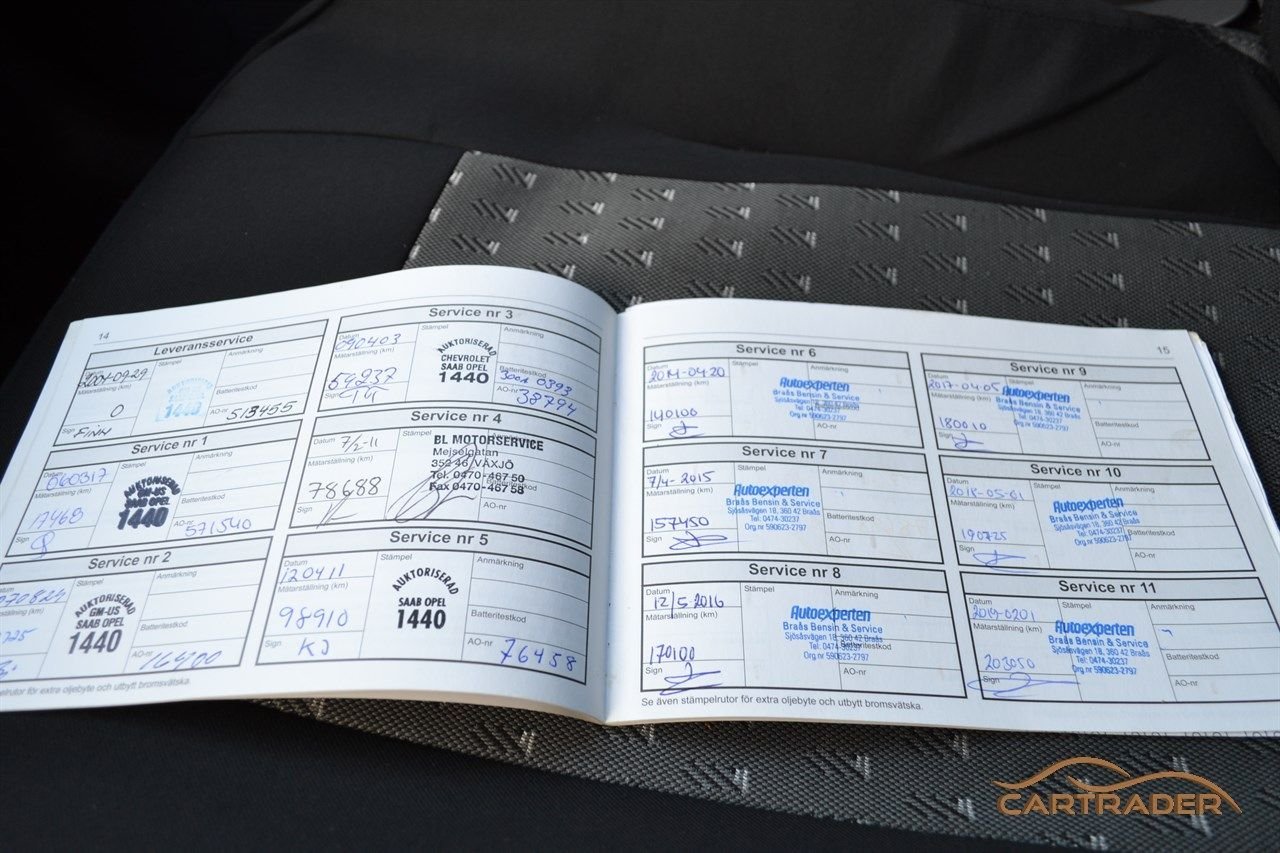 14
Leveransservice
Datum
2004-09-29
Stämpel
Anmärkning
Mätarställning (km)
0
AUKTORISERAD
1440
Batteritestkod
Sign
FINH
AO-nr
513455
Service nr 1
Datum
060317
Stämpel
Anmärkning
Mätarställning (km)
17468
AUKTORISERAD
GM-US
SAAB OPEL
1440
Batteritestkod
Sign
AO-nr
571540
Service nr 2
Stämpel
Anmärkning
070829
(km)
AUKTORISERAD
GM-US
SAAB OPEL
1440
Batteritestkod
AO-nr
16400
Service nr 3
Datum
090403
Stämpel
Anmärkning
Mätarställning (km)
59237
AUKTORISERAD
CHEVROLET
SAAB OPEL
1440
Batteritestkod
0393
Sign
AO-nr
38794
Service nr 4
Datum
7/2-11
Stämpel
Mätarställning (km)
78688
BL MOTORSERVICE
Mejselgatan
352 46 VÄXJÖ
Tel. 0470-467 50
Fax 0470-467 58
Sign
AO-nr
Service nr 5
Datum
120411
Stämpel
Anmärkning
Mätarställning (km)
98910
AUKTORISERAD
SAAB OPEL
1440
Batteritestkod
Sign
KJ
AO-nr
76458
stämpelrutor för extra oljebyte och utbytt bromsvätska.
15
Service nr 6
Datum
2014-04-20
Stämpel
Anmärkning
Mätarställning (km)
140100
Autoexperten
Braås Bensin & Service
Sjösåsvägen 18, 360 42 Braås
Tel: 0474-30237
Org.nr 590623-2797
Sign
AO-nr
Service nr 7
Datum
7/4-2015
Stämpel
Anmärkning
Mätarställning (km)
157450
Autoexperten
Braås Bensin & Service
Sjösåsvägen 18, 360 42 Braås
Tel: 0474-30237
Org.nr 590623-2797
Batteritestkod
Sign
AO-nr
Service nr 8
Datum
12/5 2016
Stämpel
Anmärkning
Mätarställning (km)
170100
Autoexperten
Braås Bensin & Service
Sjösåsvägen 18, 360 42 Braås
Tel: 0474-30237
Org.nr 590623-2797
Batteritestkod
Sign
AO-nr
Se även stämpelrutor för extra oljebyte och utbytt bromsvätska.
Service nr 9
Datum
2017-04-05
Stämpel
Anmärkning
Mätarställning (km)
180010
Autoexperten
Braås Bensin & Service
Sjösåsvägen 18, 360 42 Braås
Tel: 0474-30237
Org.nr 590623-2797
Batteritestkod
Sign
AO-nr
Service nr 10
Datum
2018-05-01
Stämpel
Anmärkning
Mätarställning (km)
190725
Autoexperten
Braås Bensin & Service
Sjösåsvägen 18, 360 42 Braås
Tel: 0474-30237
Org.nr 590623-2797
Batteritestkod
Sign
AO-nr
Service nr 11
Datum
2019-0201
Stämpel
Anmärkning
Mätarställning (km)
203050
Autoexperten
Braås Bensin & Service
Sjösåsvägen 18, 360 42 Braås
Tel: 0474-30237
Org.nr 590623-2797
Batteritestkod
Sign
AO-nr
CARTRADER